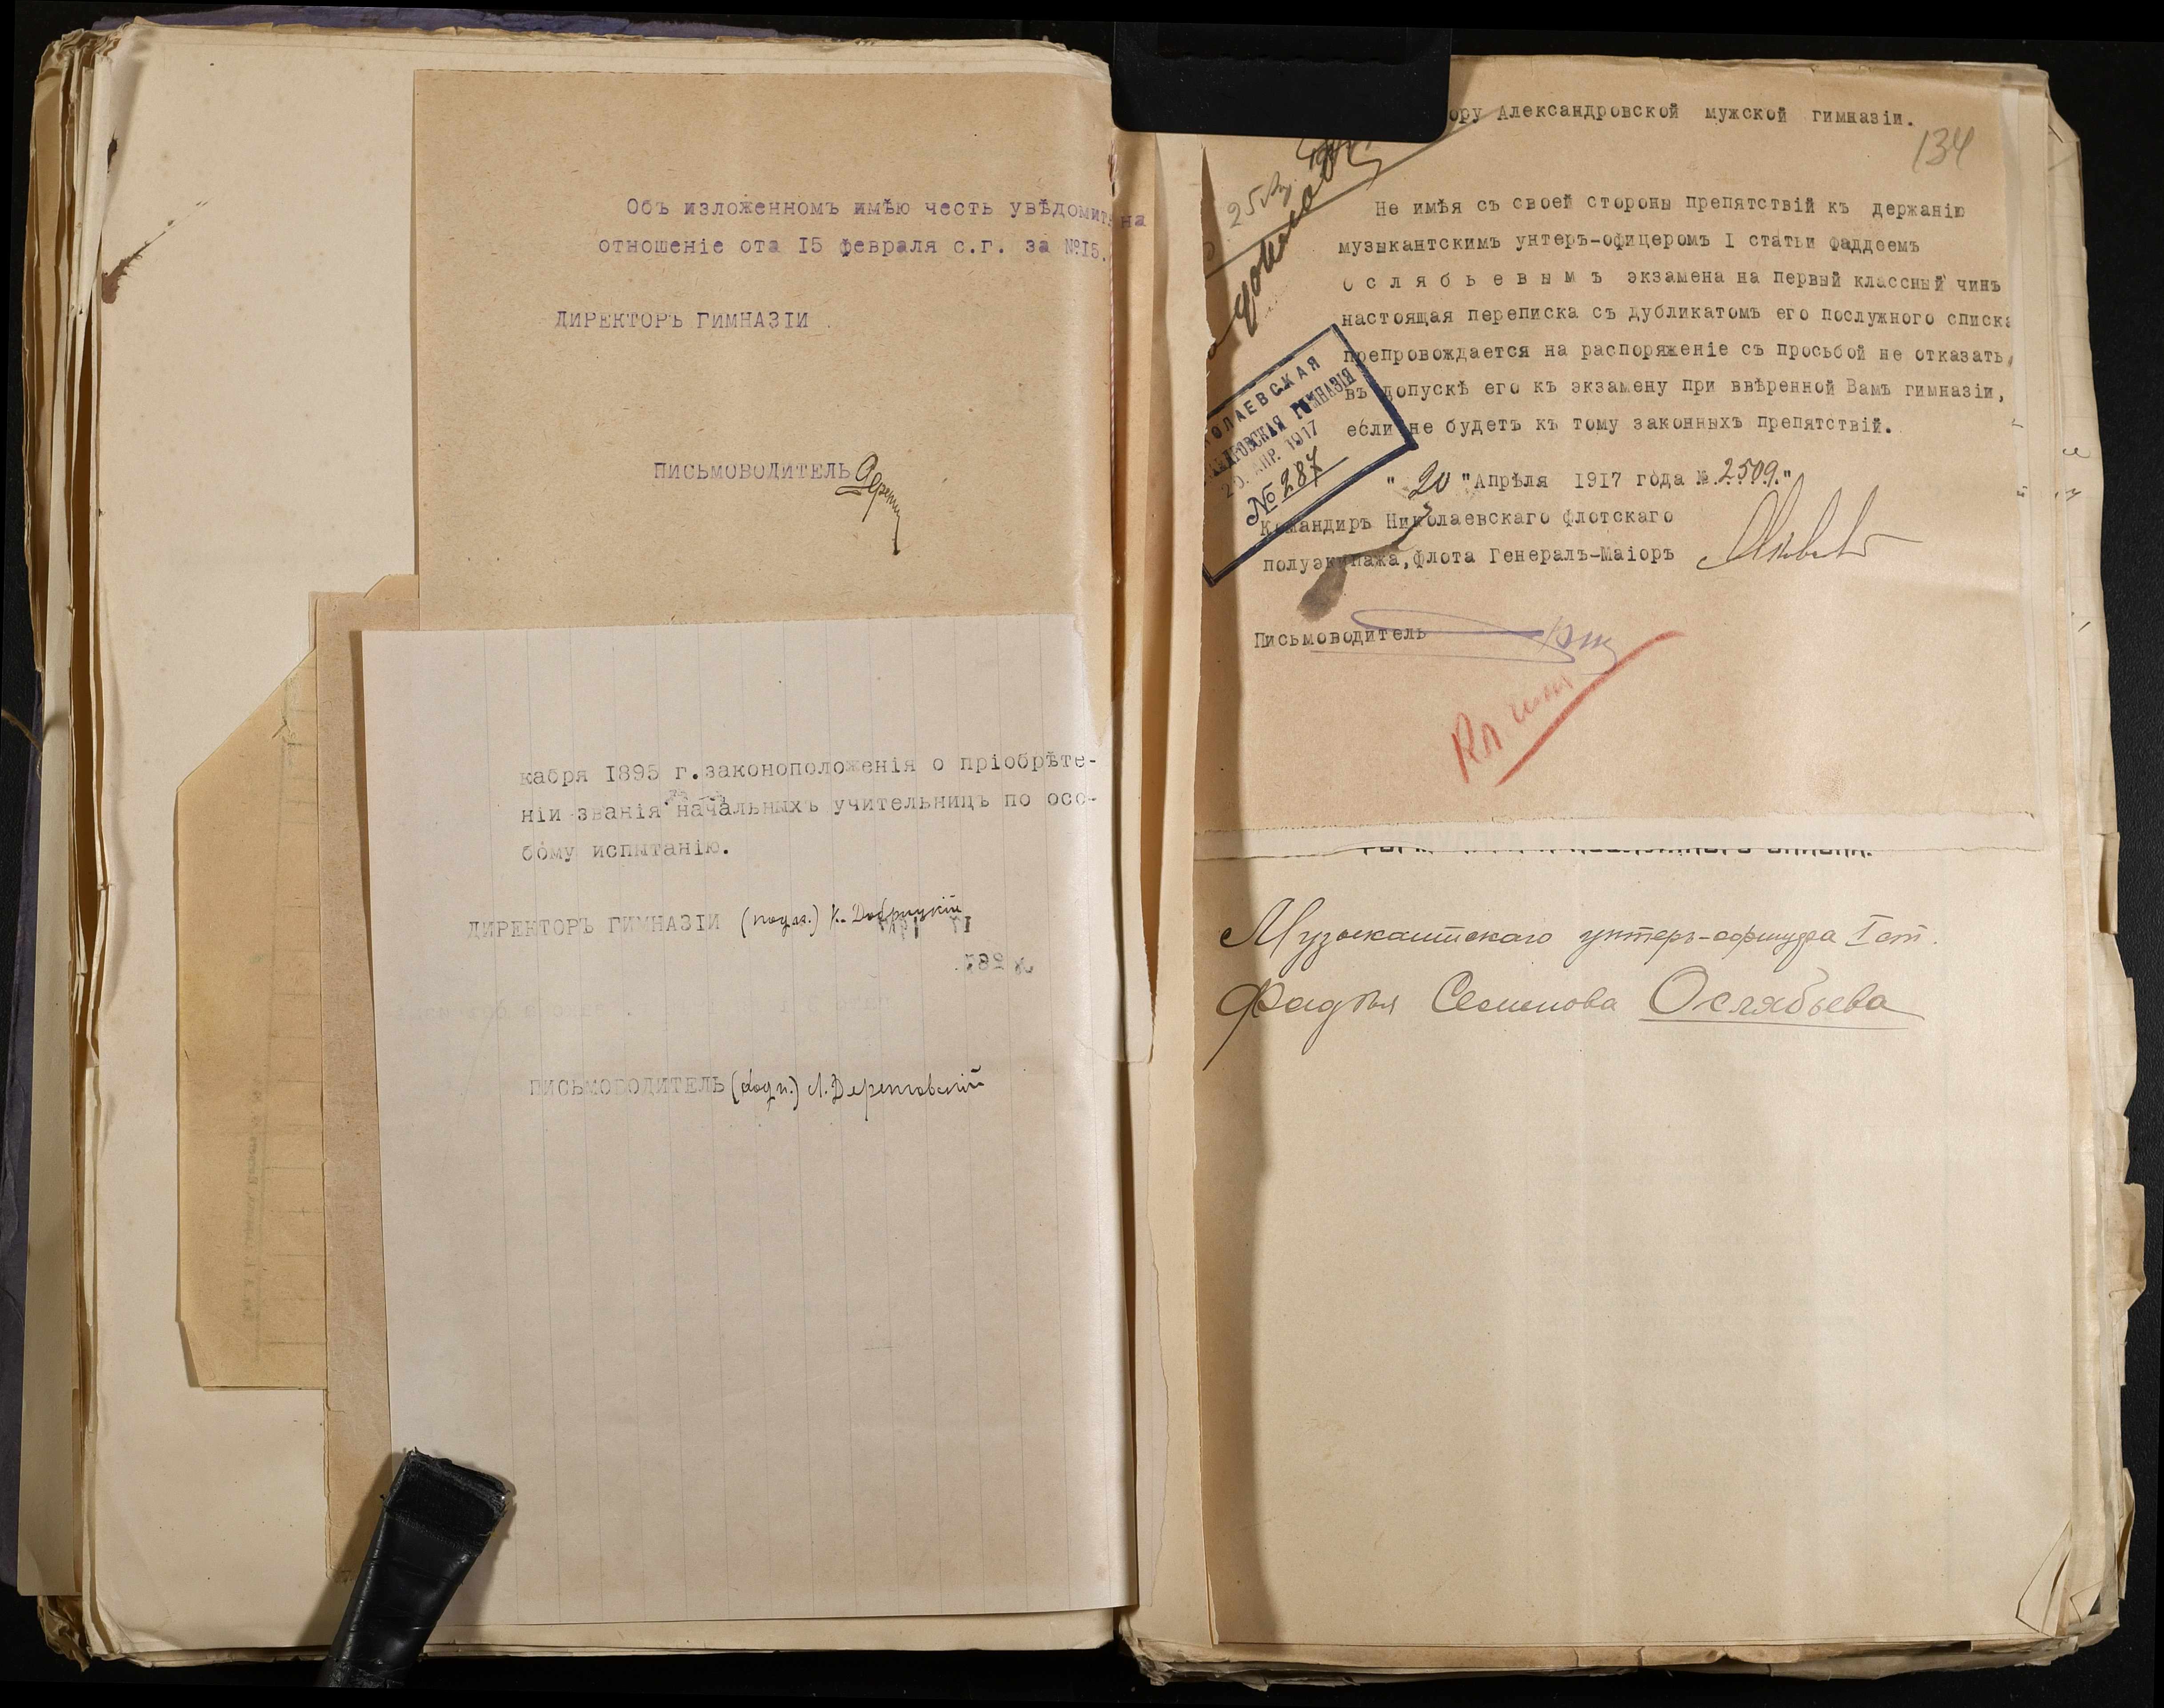 Объ изложенномъ имѣю честь увѣдомить на
отношеніе ота 15 февраля с.г. за №15.
ДИРЕКТОРЪ ГИМНАЗІИ
ПИСЬМОВОДИТЕЛЬ
кабря 1895 г. законоположенія о пріобрѣте-
ніи званія начальныхъ учительницъ по осо-
бому испытанію.
ДИРЕКТОРЪ ГИМНАЗІИ (подп.) К. Добрицкій
ПИСЬМОВОДИТЕЛЬ (подп.) Л. Веретовскій
ору Александровской мужской гимназіи.
134
Не имѣя съ своей стороны препятствій къ держанію
музыкантскимъ унтеръ-офицеромъ I статьи Фаддеемъ
Ослябьевымъ экзамена на первый классный чинъ
настоящая переписка съ дубликатомъ его послужного списка
препровождается на распоряженіе съ просьбой не отказать,
въ допускѣ его къ экзамену при ввѣренной Вамъ гимназіи,
если не будетъ къ тому законныхъ препятствій.
ОЛАЕВСКАЯ
НДРОВСКАЯ ГИМНАЗІЯ
АПР. 1917
№ 287
" 20 " Апрѣля 1917 года №. 2509."
Командиръ Николаевскаго флотскаго
полуэкипажа, флота Генералъ-Маіоръ
Письмоводитель
Музыкантскаго унтеръ-офицера I ст.
Фадѣя Семенова Ослябьева